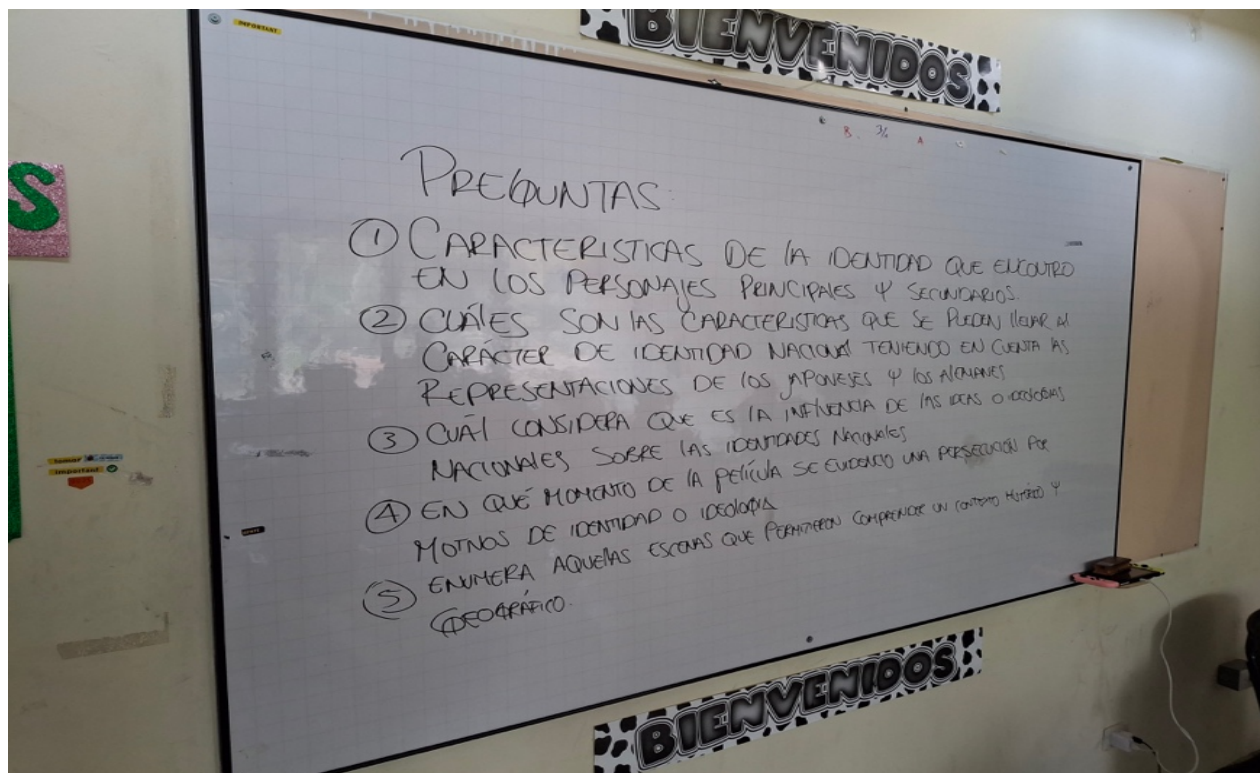 IMPORTANT
BIENVENIDOS
B 3/2 A
S
PREGUNTAS:
① CARACTERISTICAS DE LA IDENTIDAD QUE ENCONTRO
EN LOS PERSONAJES PRINCIPALES Y SECUNDARIOS.
② CUÁLES SON LAS CARACTERISTICAS QUE SE PUEDEN LLEVAR AL
CARÁCTER DE IDENTIDAD NACIONAL TENIENDO EN CUENTA LAS
REPRESENTACIONES DE LOS JAPONESES Y LOS ALEMANES
③ CUÁL CONSIDERA QUE ES LA INFLUENCIA DE LAS IDEAS O IDEOLOGIAS
NACIONALES SOBRE LAS IDENTIDADES NACIONALES
④ EN QUÉ MOMENTO DE LA PELÍCULA SE EVIDENCIO UNA PERSECUCIÓN POR
MOTIVOS DE IDENTIDAD O IDEOLOGÍA
⑤ ENUMERA AQUELLAS ESCENAS QUE PERMITIERON COMPRENDER UN CONTEXTO HISTÓRICO Y
GEOGRÁFICO.
Important
BIENVENIDOS